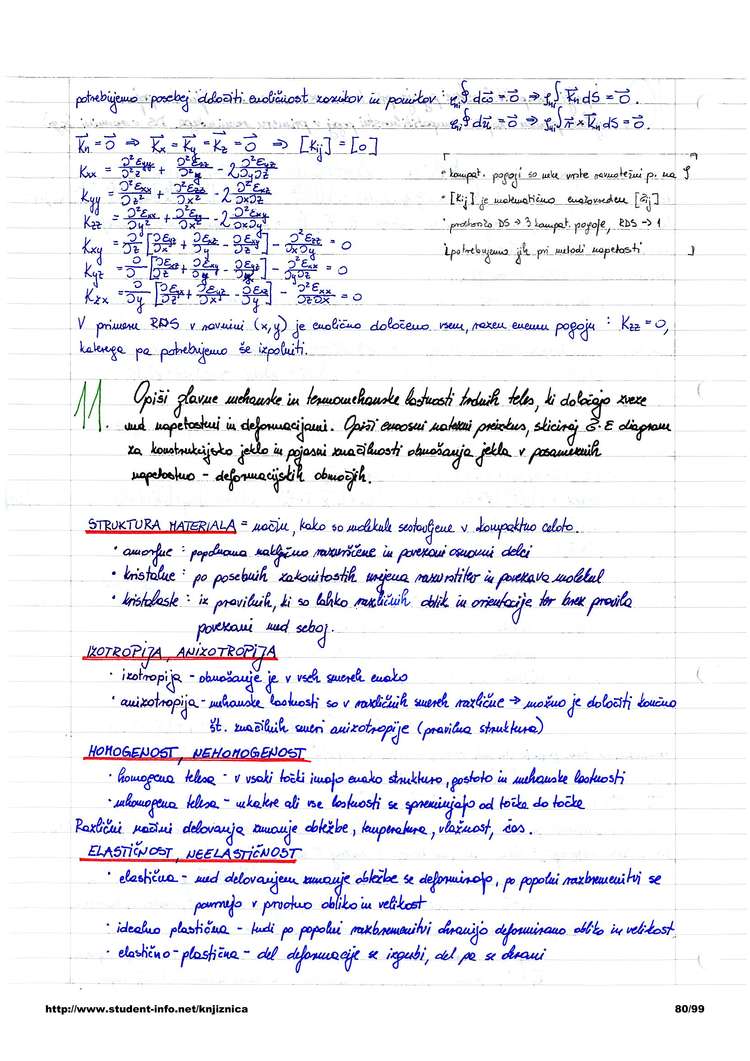 potrebujemo posebej določiti enoličnost zasukov in pomikov : ∮ dω⃗ = 0⃗ ⇒ ∫ K⃗n dS = 0⃗.
∮ du⃗ = 0⃗ ⇒ ∫ r⃗ × K⃗n dS = 0⃗.
K⃗n = 0⃗ ⇒ K⃗x = K⃗y = K⃗z = 0⃗ ⇒ [Kij] = [0]
Kxx = ∂²εyy/∂z² + ∂²εzz/∂y² - 2 ∂²εyz/∂y∂z
Kyy = ∂²εxx/∂z² + ∂²εzz/∂x² - 2 ∂²εxz/∂x∂z
Kzz = ∂²εxx/∂y² + ∂²εyy/∂x² - 2 ∂²εxy/∂x∂y
Kxy = ∂/∂z [∂εyz/∂x + ∂εzx/∂y - ∂εxy/∂z] - ∂²εzz/∂x∂y = 0
Kyz = ∂/∂x [∂εxz/∂y + ∂εxy/∂z - ∂εyz/∂x] - ∂²εxx/∂y∂z = 0
Kzx = ∂/∂y [∂εxy/∂z + ∂εyz/∂x - ∂εxz/∂y] - ∂²εyy/∂z∂x = 0
• kompat. pogoji so neke vrste ravnotežni p. na
• [Kij] je matematično enakovreden
• prostorsko DS → 3 kompat. pogoje, RDS → 1
potrebujemo jih pri metodi napetosti
V primeru RDS v ravnini (x,y) je enolično določeno vsem, razen enemu pogoju : Kzz = 0,
katerega pa potrebujemo še izpolniti.
11. Opiši glavne mehanske in termomehanske lastnosti trdnih teles, ki določajo zveze
med napetostmi in deformacijami. Opiši enoosni natezni preizkus, skiciraj σ-ε diagram
za konstrukcijsko jeklo in pojasni značilnosti obnašanja jekla v posameznih
napetostno - deformacijskih območjih.
STRUKTURA MATERIALA = način, kako so molekule sestavljene v kompaktno celoto.
• amorfne : popolnoma naključno razvrščene in povezani osnovni delci
• kristalne : po posebnih zakonitostih urejena razvrstitev in povezava molekul
• kristalaste : iz pravilnih, ki so lahko različnih oblik in orientacije ter brez pravila
povezani med seboj.
IZOTROPIJA, ANIZOTROPIJA
• izotropija - obnašanje je v vseh smereh enako
• anizotropija - mehanske lastnosti so v različnih smereh različne → možno je določiti končno
št. značilnih smeri anizotropije (pravilna struktura)
HOMOGENOST, NEHOMOGENOST
• homogena telesa - v vsaki točki imajo enako strukturo, gostoto in mehanske lastnosti
• nehomogena telesa - nekatere ali vse lastnosti se spreminjajo od točke do točke
Različni načini delovanja zunanje obtežbe, temperatura, vlažnost, čas.
ELASTIČNOST, NEELASTIČNOST
• elastična - med delovanjem zunanje obtežbe se deformirajo, po popolni razbremenitvi se
povrnejo v prvotno obliko in velikost
• idealno plastična - tudi po popolni razbremenitvi ohranijo deformirano obliko in velikost
• elastično - plastična - del deformacije se izgubi, del pa se ohrani
http://www.student-info.net/knjiznica
80/99